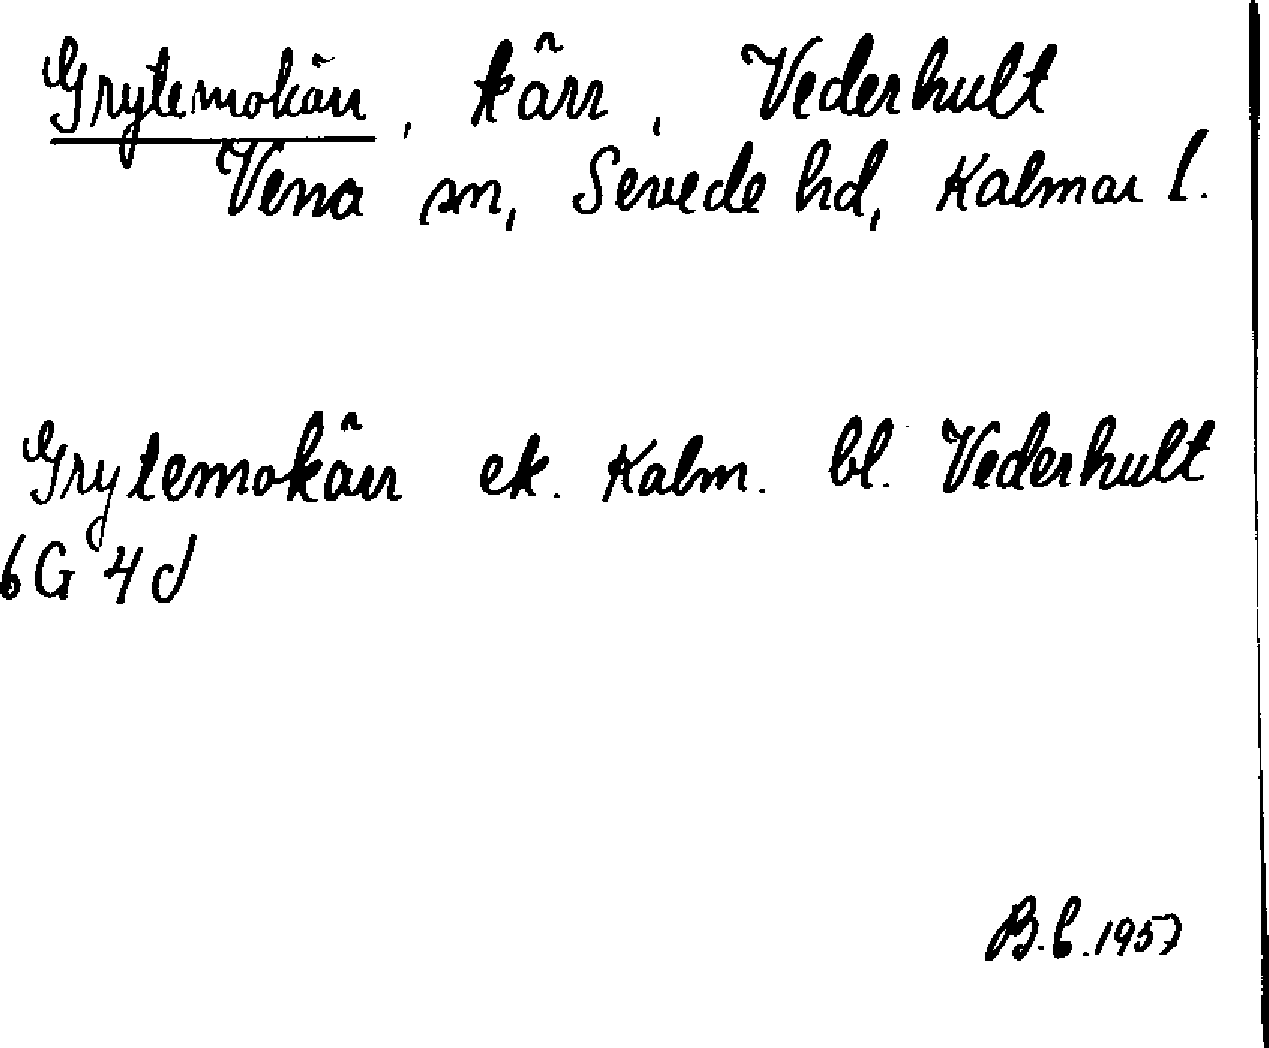 Grytemokärr, kärr, Vederhult
Vena sn, Sevede hd, Kalmar l.
Grytemokärr ek. Kalm. bl. Vederhult
6G 4d
B.C. 1957